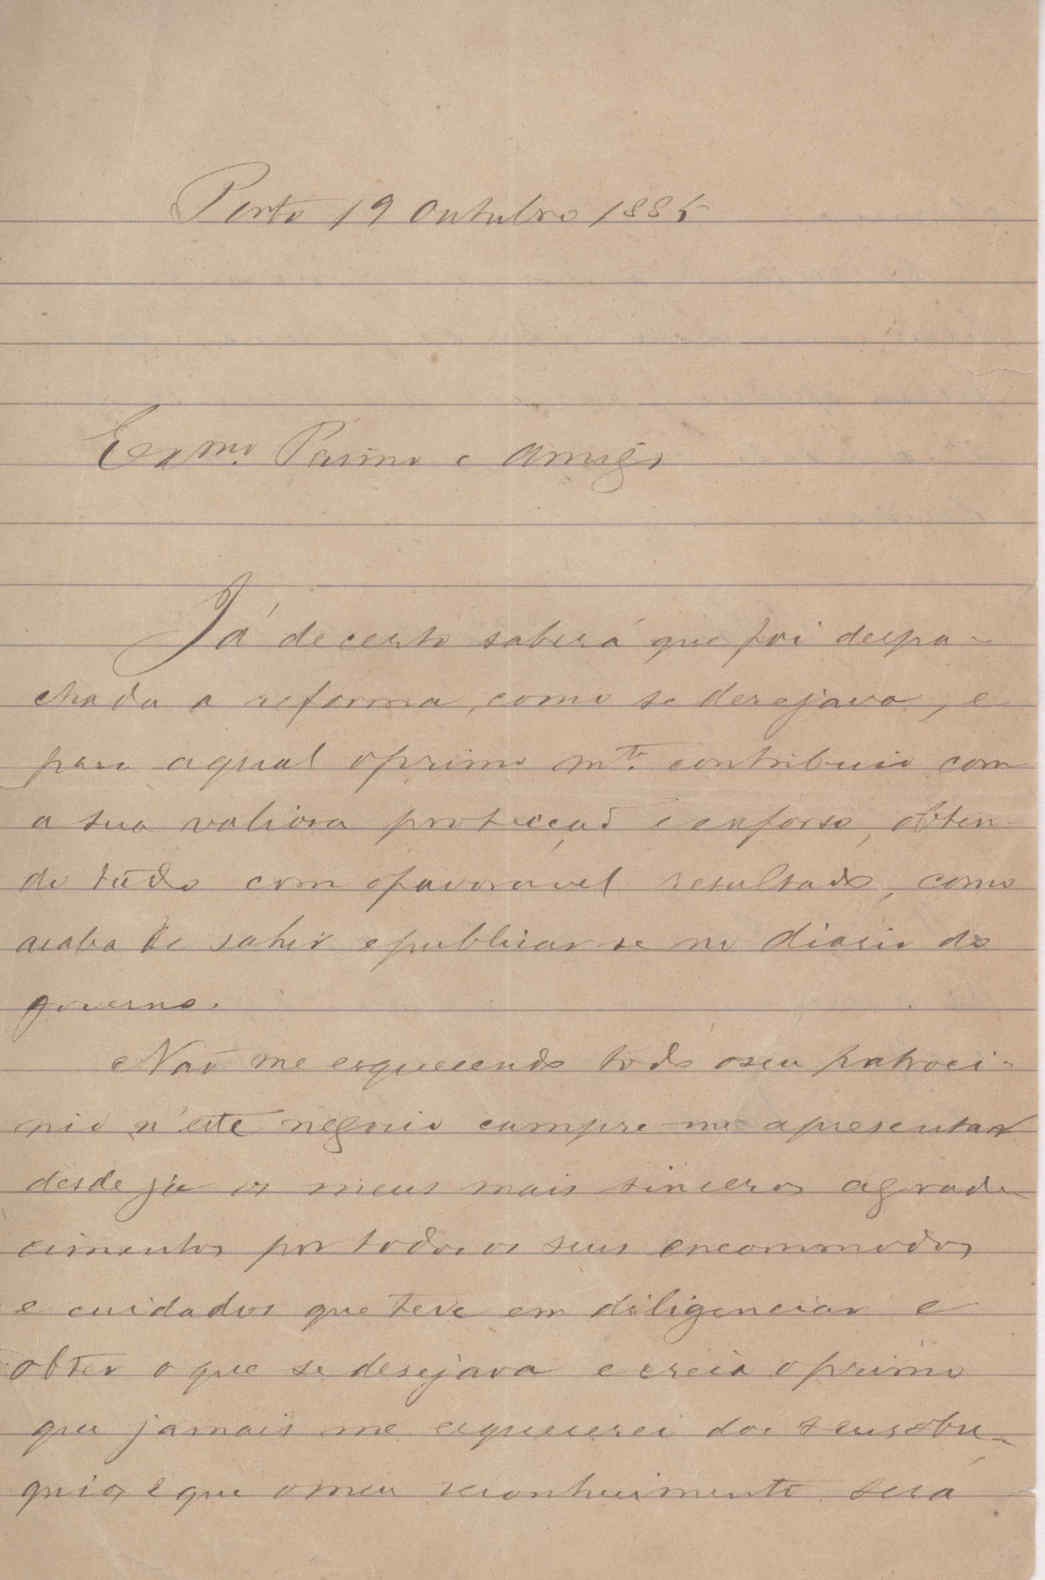 Porto 19 Outubro 1885
Exmo. Primo e Amigo
Já decerto saberá que foi despa-
chada a reforma, como se desejava, e
para a qual o primo mto. contribuio com
a sua valiosa protecçaõ e esforso, obten-
do tudo com o favoravel resultado, como
acaba de sahir e publicar-se no diario do
governo.
Naõ me esquecendo todo o seu patroci-
nio n'este negocio cumpre-me apresentar
desde já os meus mais sinceros agrade-
cimentos por todos os seus encommodos
e cuidados que teve em diligenciar e
obter o que se desejava e creia o primo
que jamais me esquecerei dos seus obse-
quios e que o meu reconhecimento será